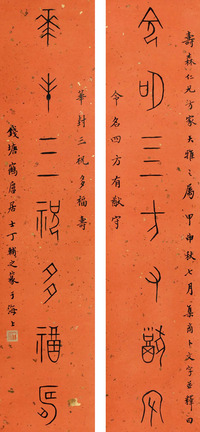 壽森仁兄方家大雅之屬 甲申秋七月 集商卜文字並釋曰
令名四方有猷守
令名四方又猷守
華封三祝多福壽
華封三祝多福壽
錢塘鶴廬居士丁輔之篆于海上